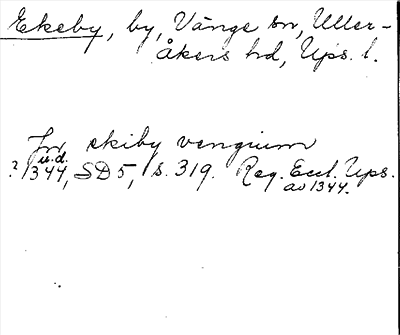 Ekeby, by, Vänge sn, Uller-
åkers hd, Ups. l.
Jn ekiby vengium
u.d.
? 1344, SD 5, s. 319. Reg. Eccl. Ups.
av 1344.